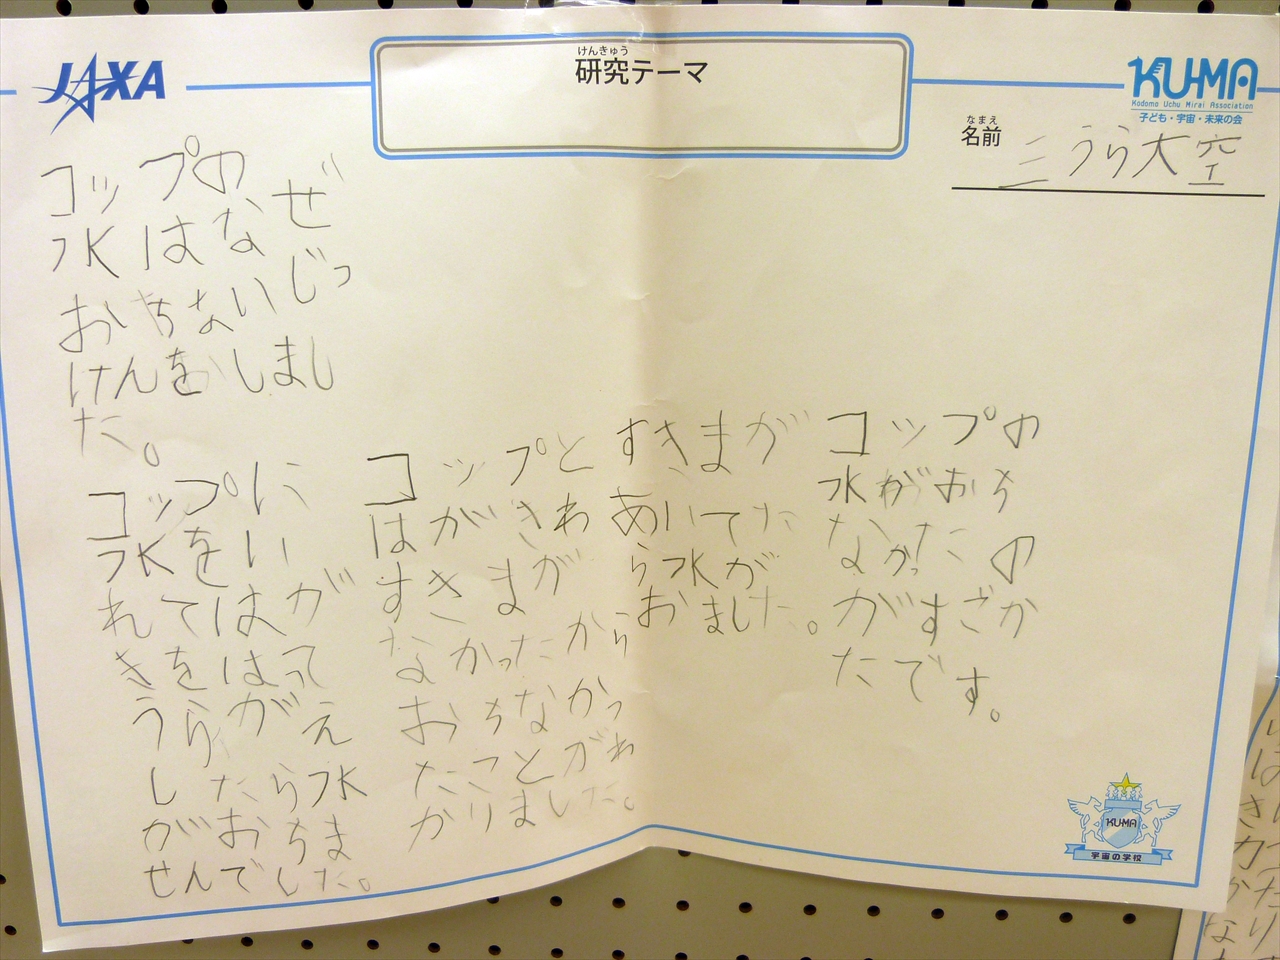 JAXA
けんきゅう
研究テーマ
KU-MA
Kodomo Uchu Mirai Association
子ども・宇宙・未来の会
なまえ
名前
三うら大空
コップの
水はなぜ
おちないじっ
けんをしまし
た。
コップに
水をい
れてはが
きをはって
うらがえ
したら水
がおちま
せんでした。
コップと
はがきわ
すきまが
なかったから
おちなかっ
たことがわ
かりました。
すきまが
あいてた
ら水が
おました。
コップの
水がおち
なかったの
がすごか
たです。
KU-MA
宇宙の学校